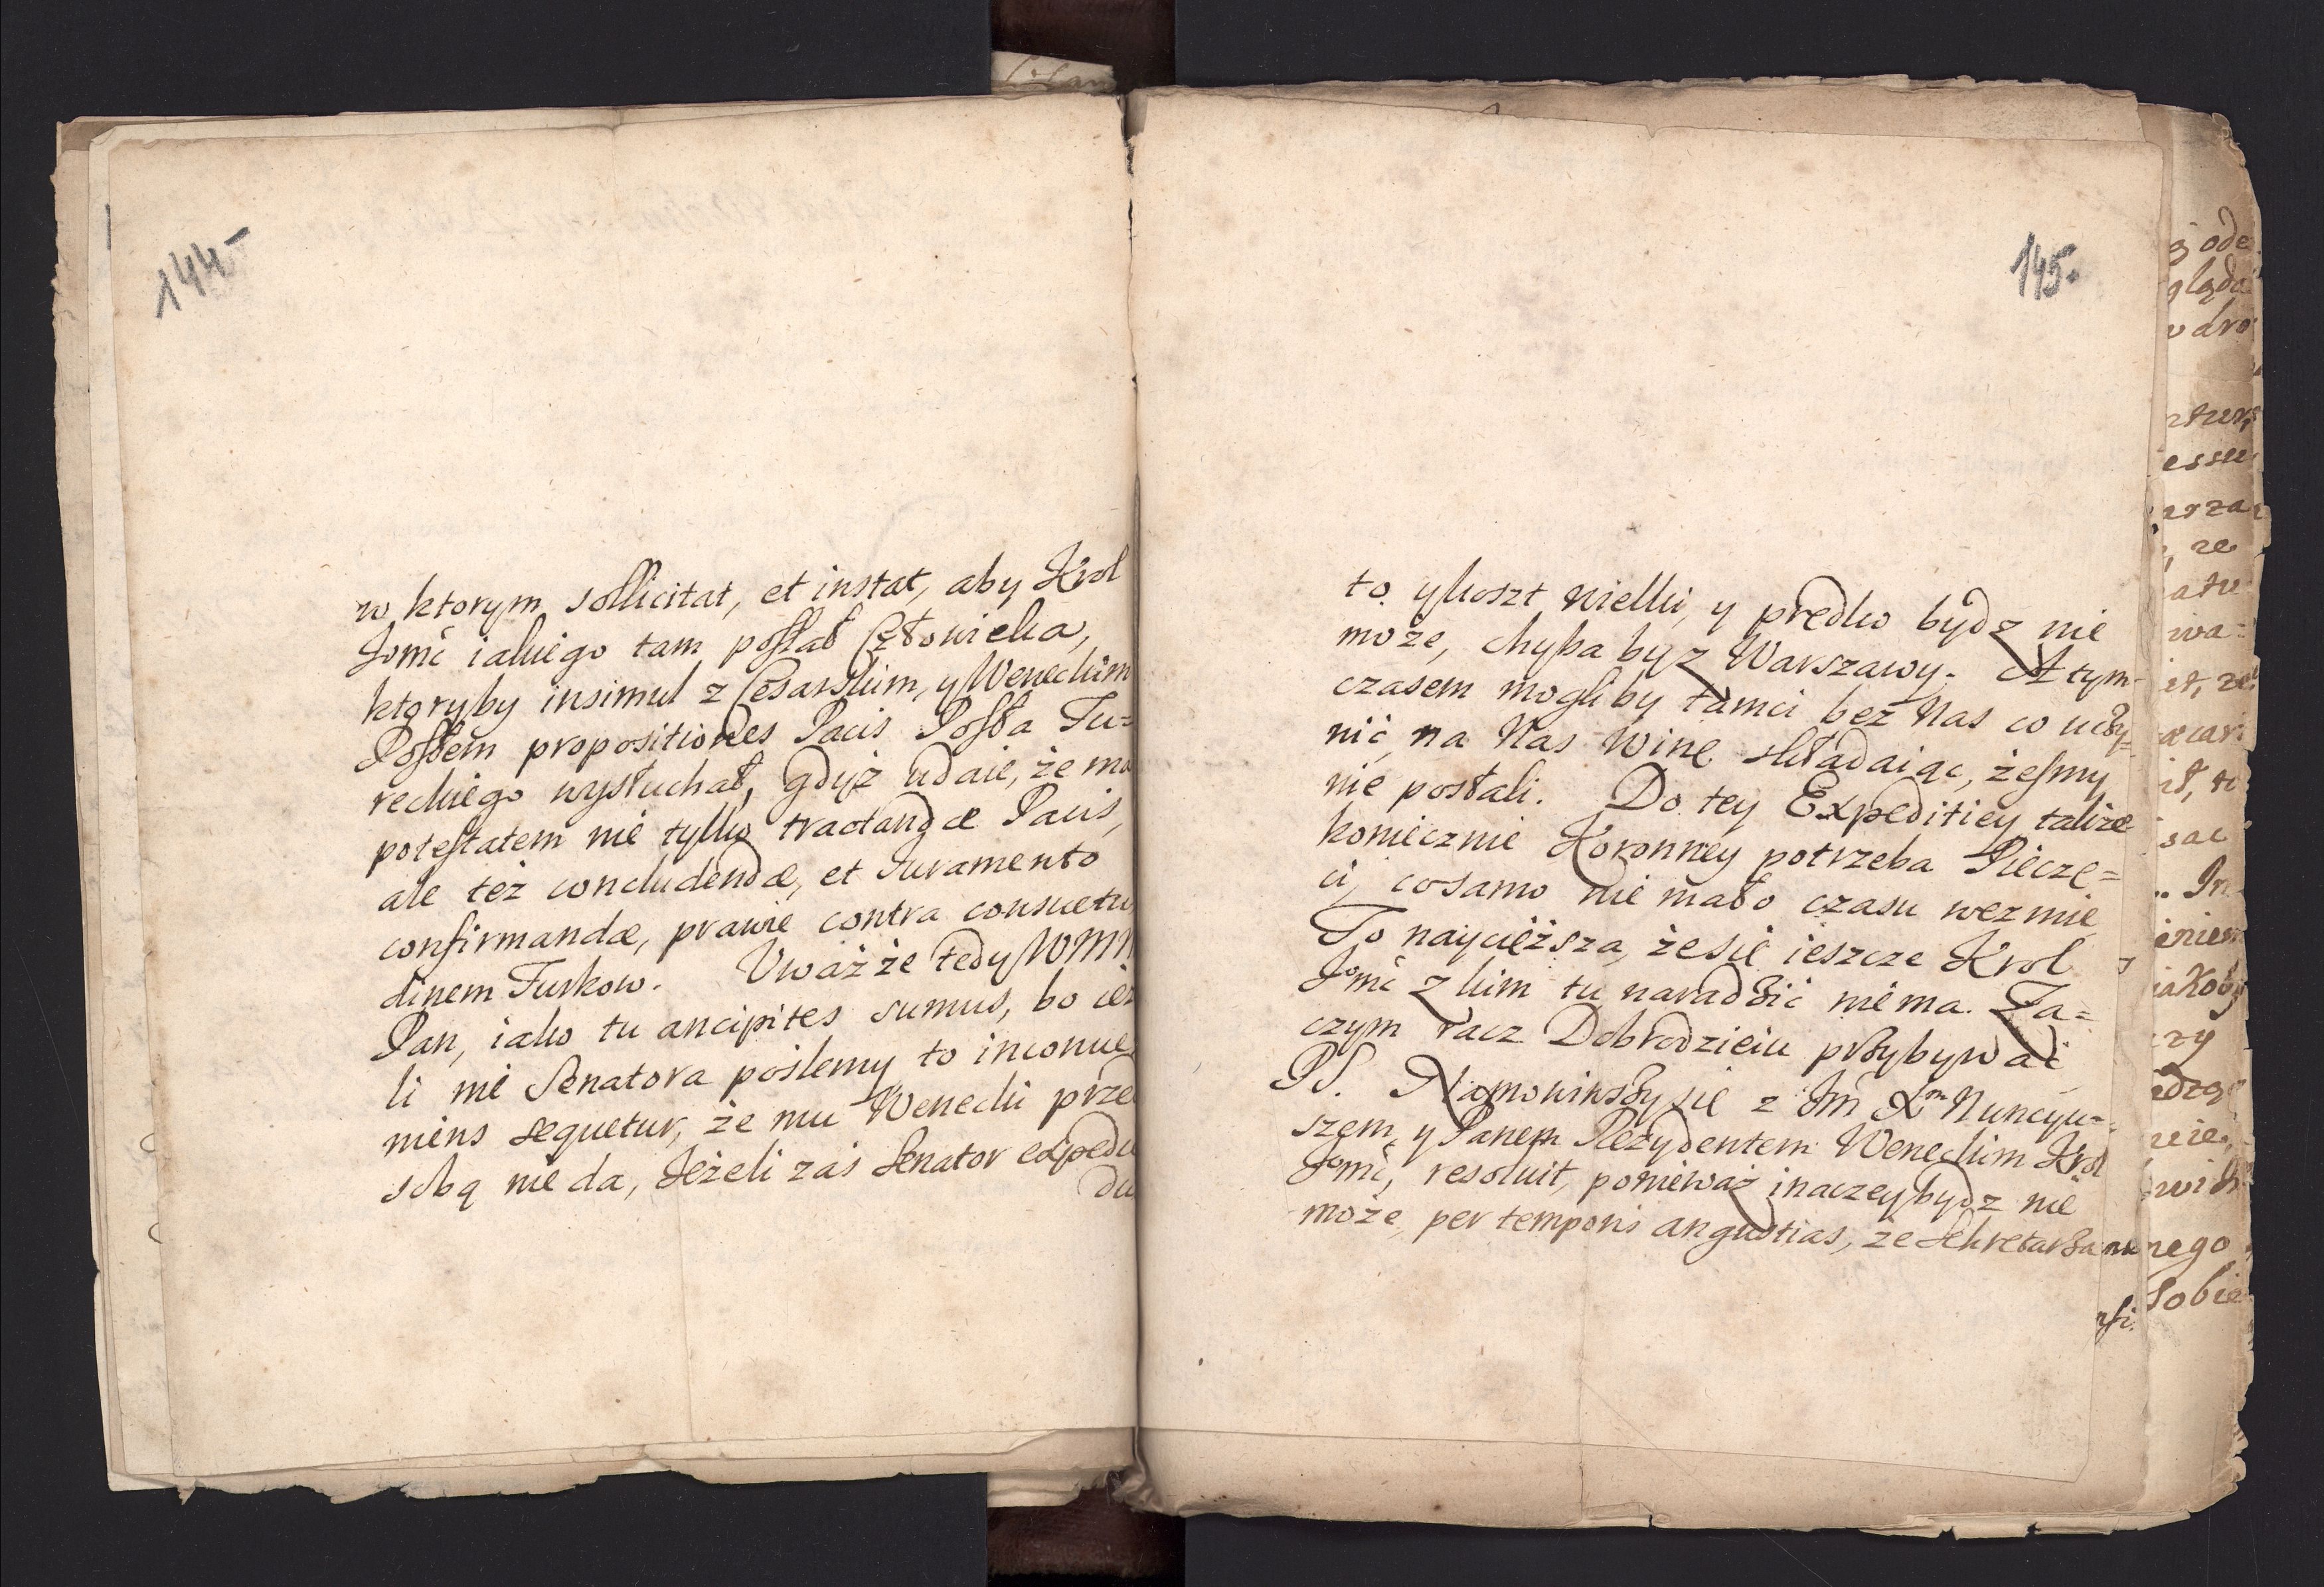 144
w ktorym sollicitat, et instat, aby Krol
Jomć iakiego tam posłał Człowieka,
ktoryby insimul z Cesarskim, y Weneckim
Posłem propositiones Pacis Posła Tu=
reckiego wysłuchał, gdyż udaie, że ma
potestatem nie tylko tractandæ Pacis,
ale też concludendæ, et Juramento
confirmandæ, prawie contra consuetu
dinem Turkow. Uważże tedy WM
Pan, iako tu ancipites sumus, bo ież
li nie Senatora poślemy to inconue
niens sequetur, że mu Wenecki przed
sobą nie da, Jeżeli zaś Senator expedi
du
145.
to y koszt wielki, y prędko bydz nie
może, chyba by z Warszawy. A tym=
czasem mogliby tamci bez Nas co uczy=
nić, na Nas winę składaiąc, żeśmy
nie posłali. Do tey Expeditiey takze
koniecznie Koronney potrzeba Pieczę=
ci, co samo nie mało czasu wezmie
To naycięższa, że się ieszcze Krol
Jomć z kim tu naradzić nie ma. Za=
czym racz Dobrodzieiu przybywać
PS. Namowiwszy się z Jm X.m Nuncyu=
szem, y Panem Rezydentem Weneckim Krol
Jomć, resoluit, ponieważ inaczey bydz nie
może, per temporis angustias, że Sekretarza